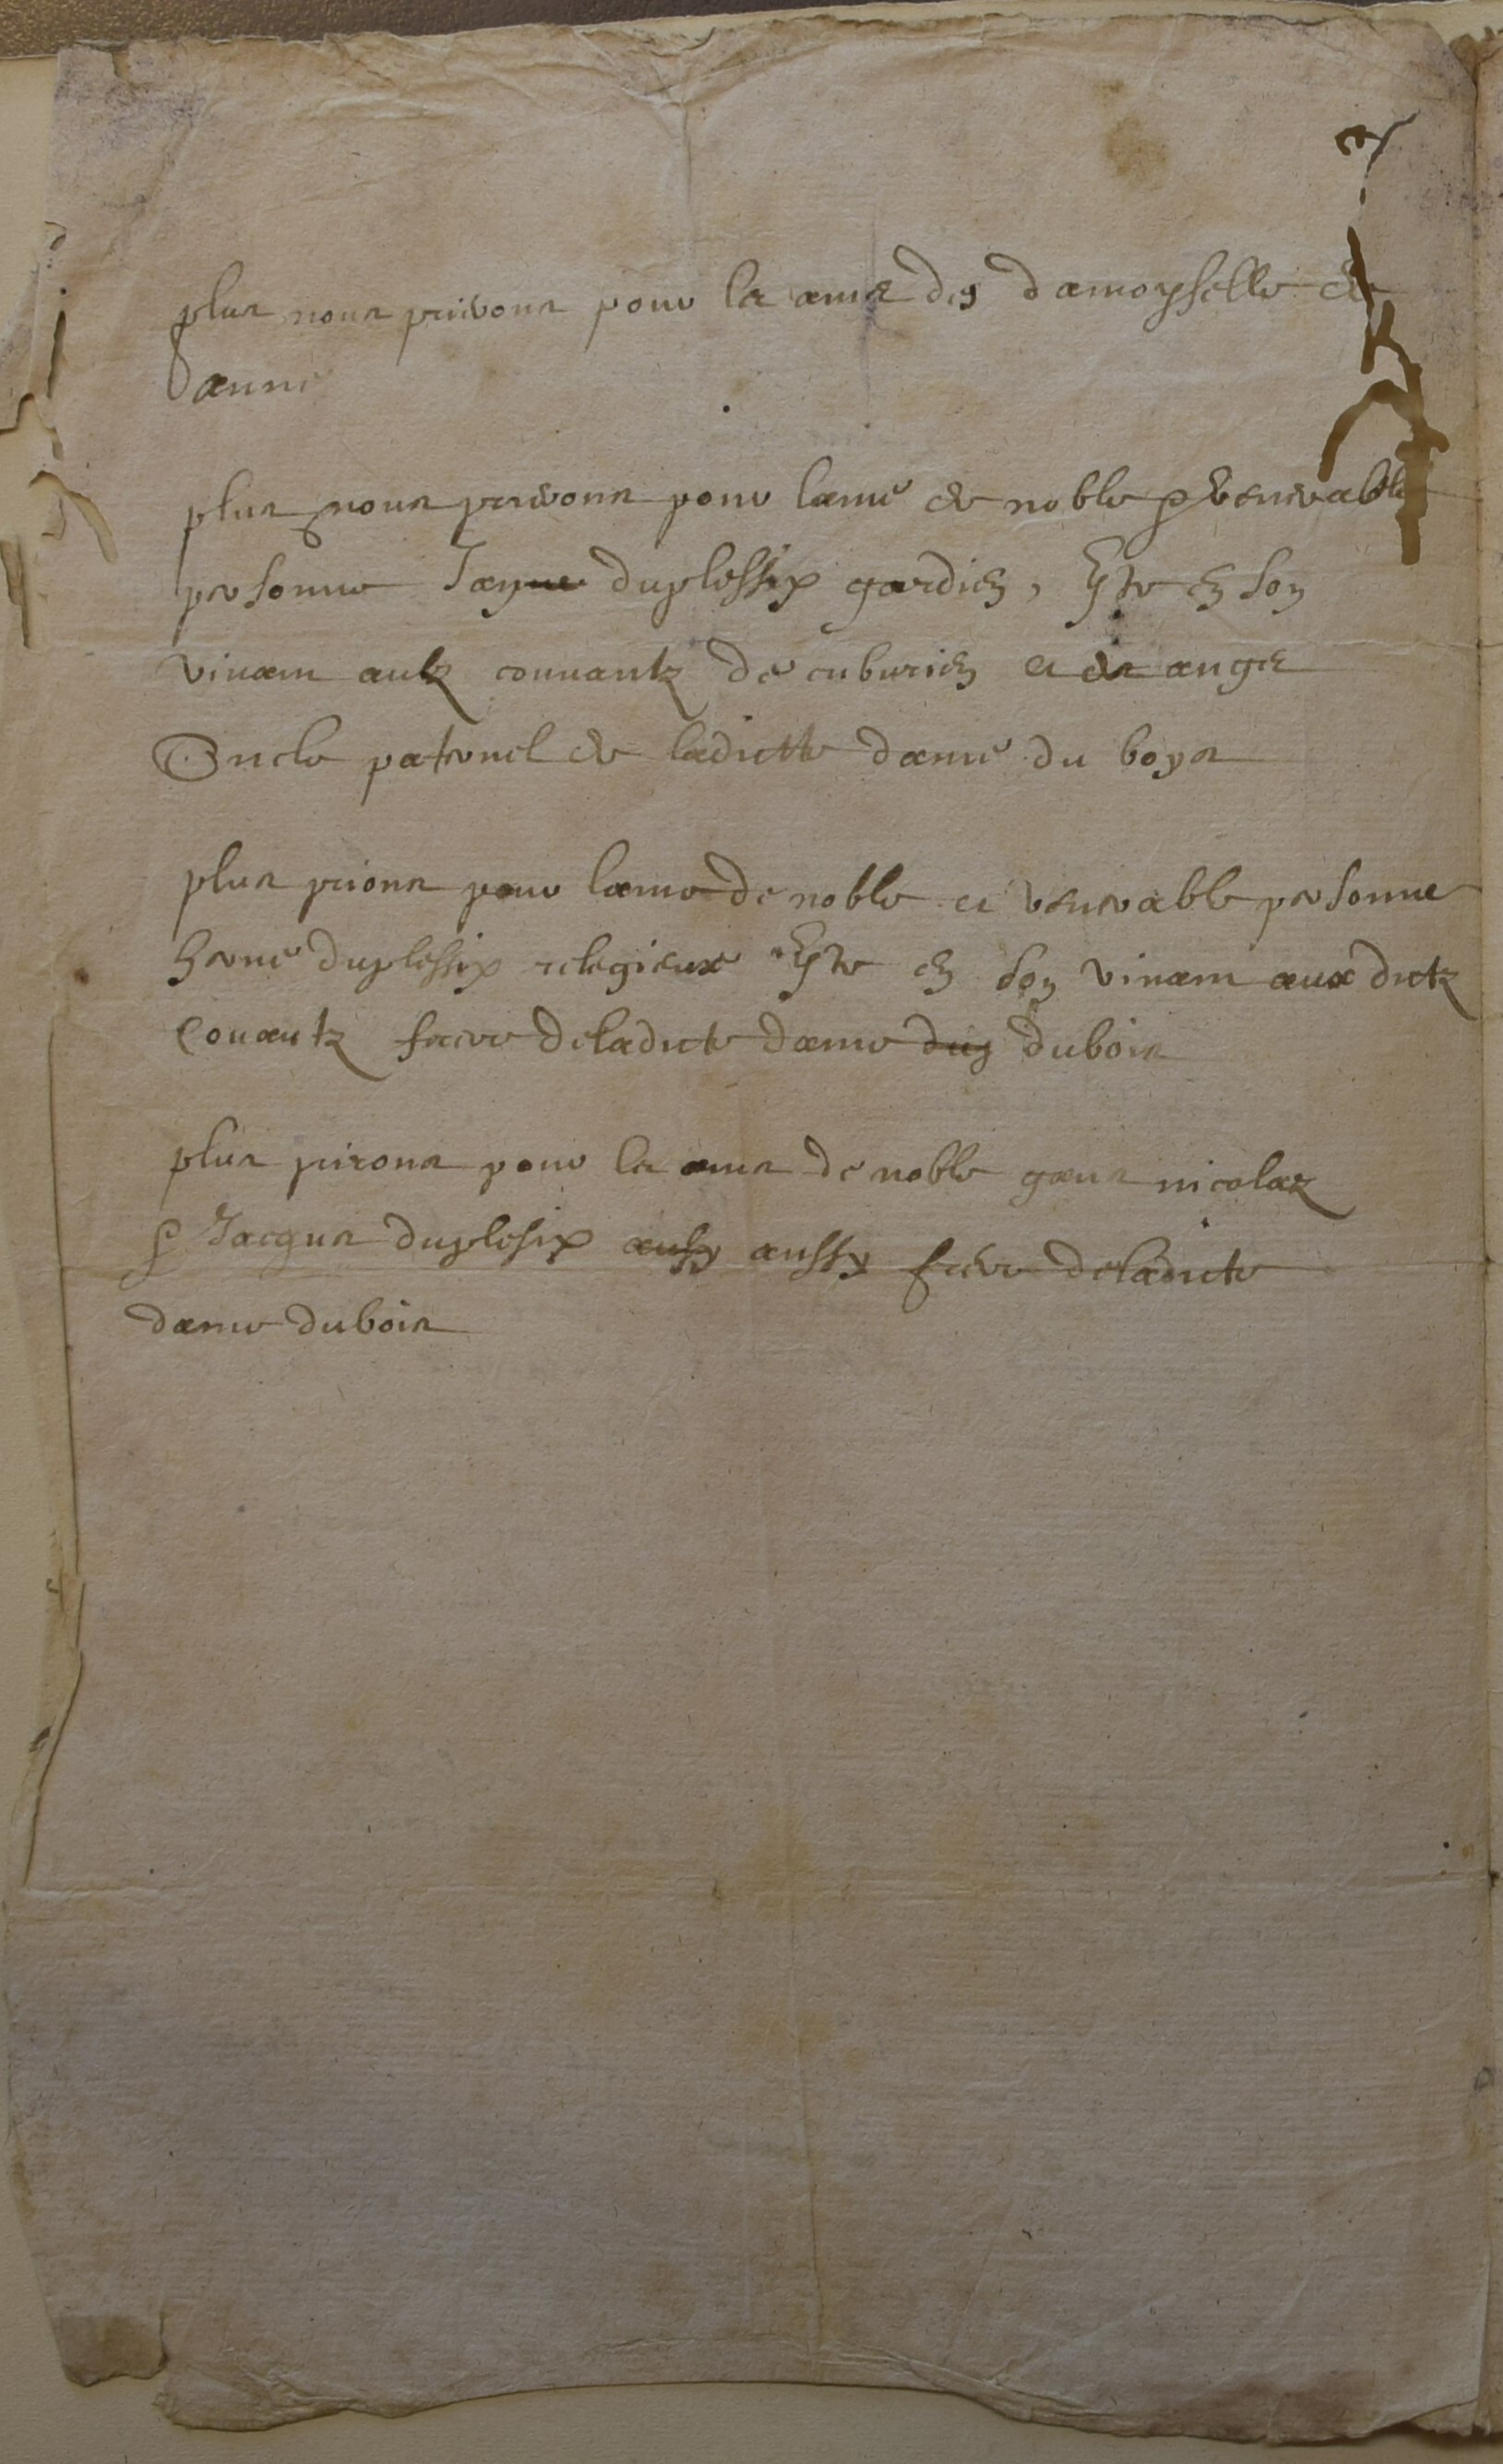 plus nous prirons pour les ames des damoysselle de
Danne
plus nous prirons pour lame de noble & venerable
personne Jayme duplessix gardien, Estre en son
vivant aultz convantz de cuburien et de ange
Oncle paternel de ladictte dame du boys
plus prions pour lame de noble et venerable personne
herve duplessix relegieux Estre en son vivant aux dictz
Convantz frere de ladicte dame dubois
plus prirons pour les ames de noble gens nicolaz
& Jacques duplesix aussy aussy frere de ladicte
dame dubois